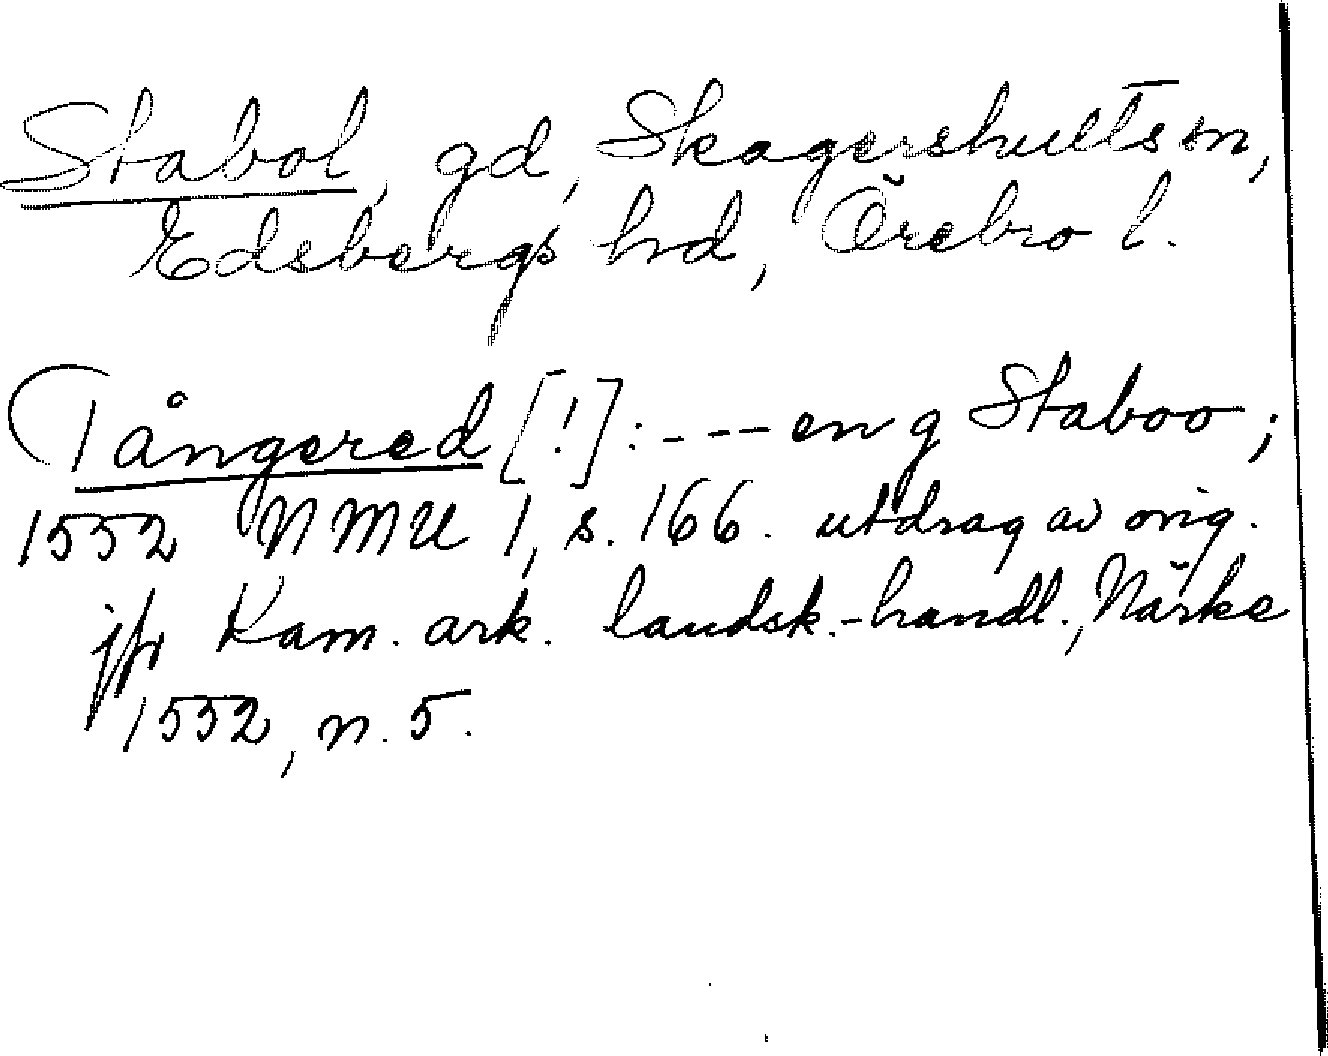 Stabol, gd, Skagershults sn,
Edsbergs hd, Örebro l.
Tångered [!]: --- en g Staboo;
1552 NMU 1, s. 166. utdrag av orig.
jfr Kam. ark. landsk.-handl., Närke
1552, n. 5.